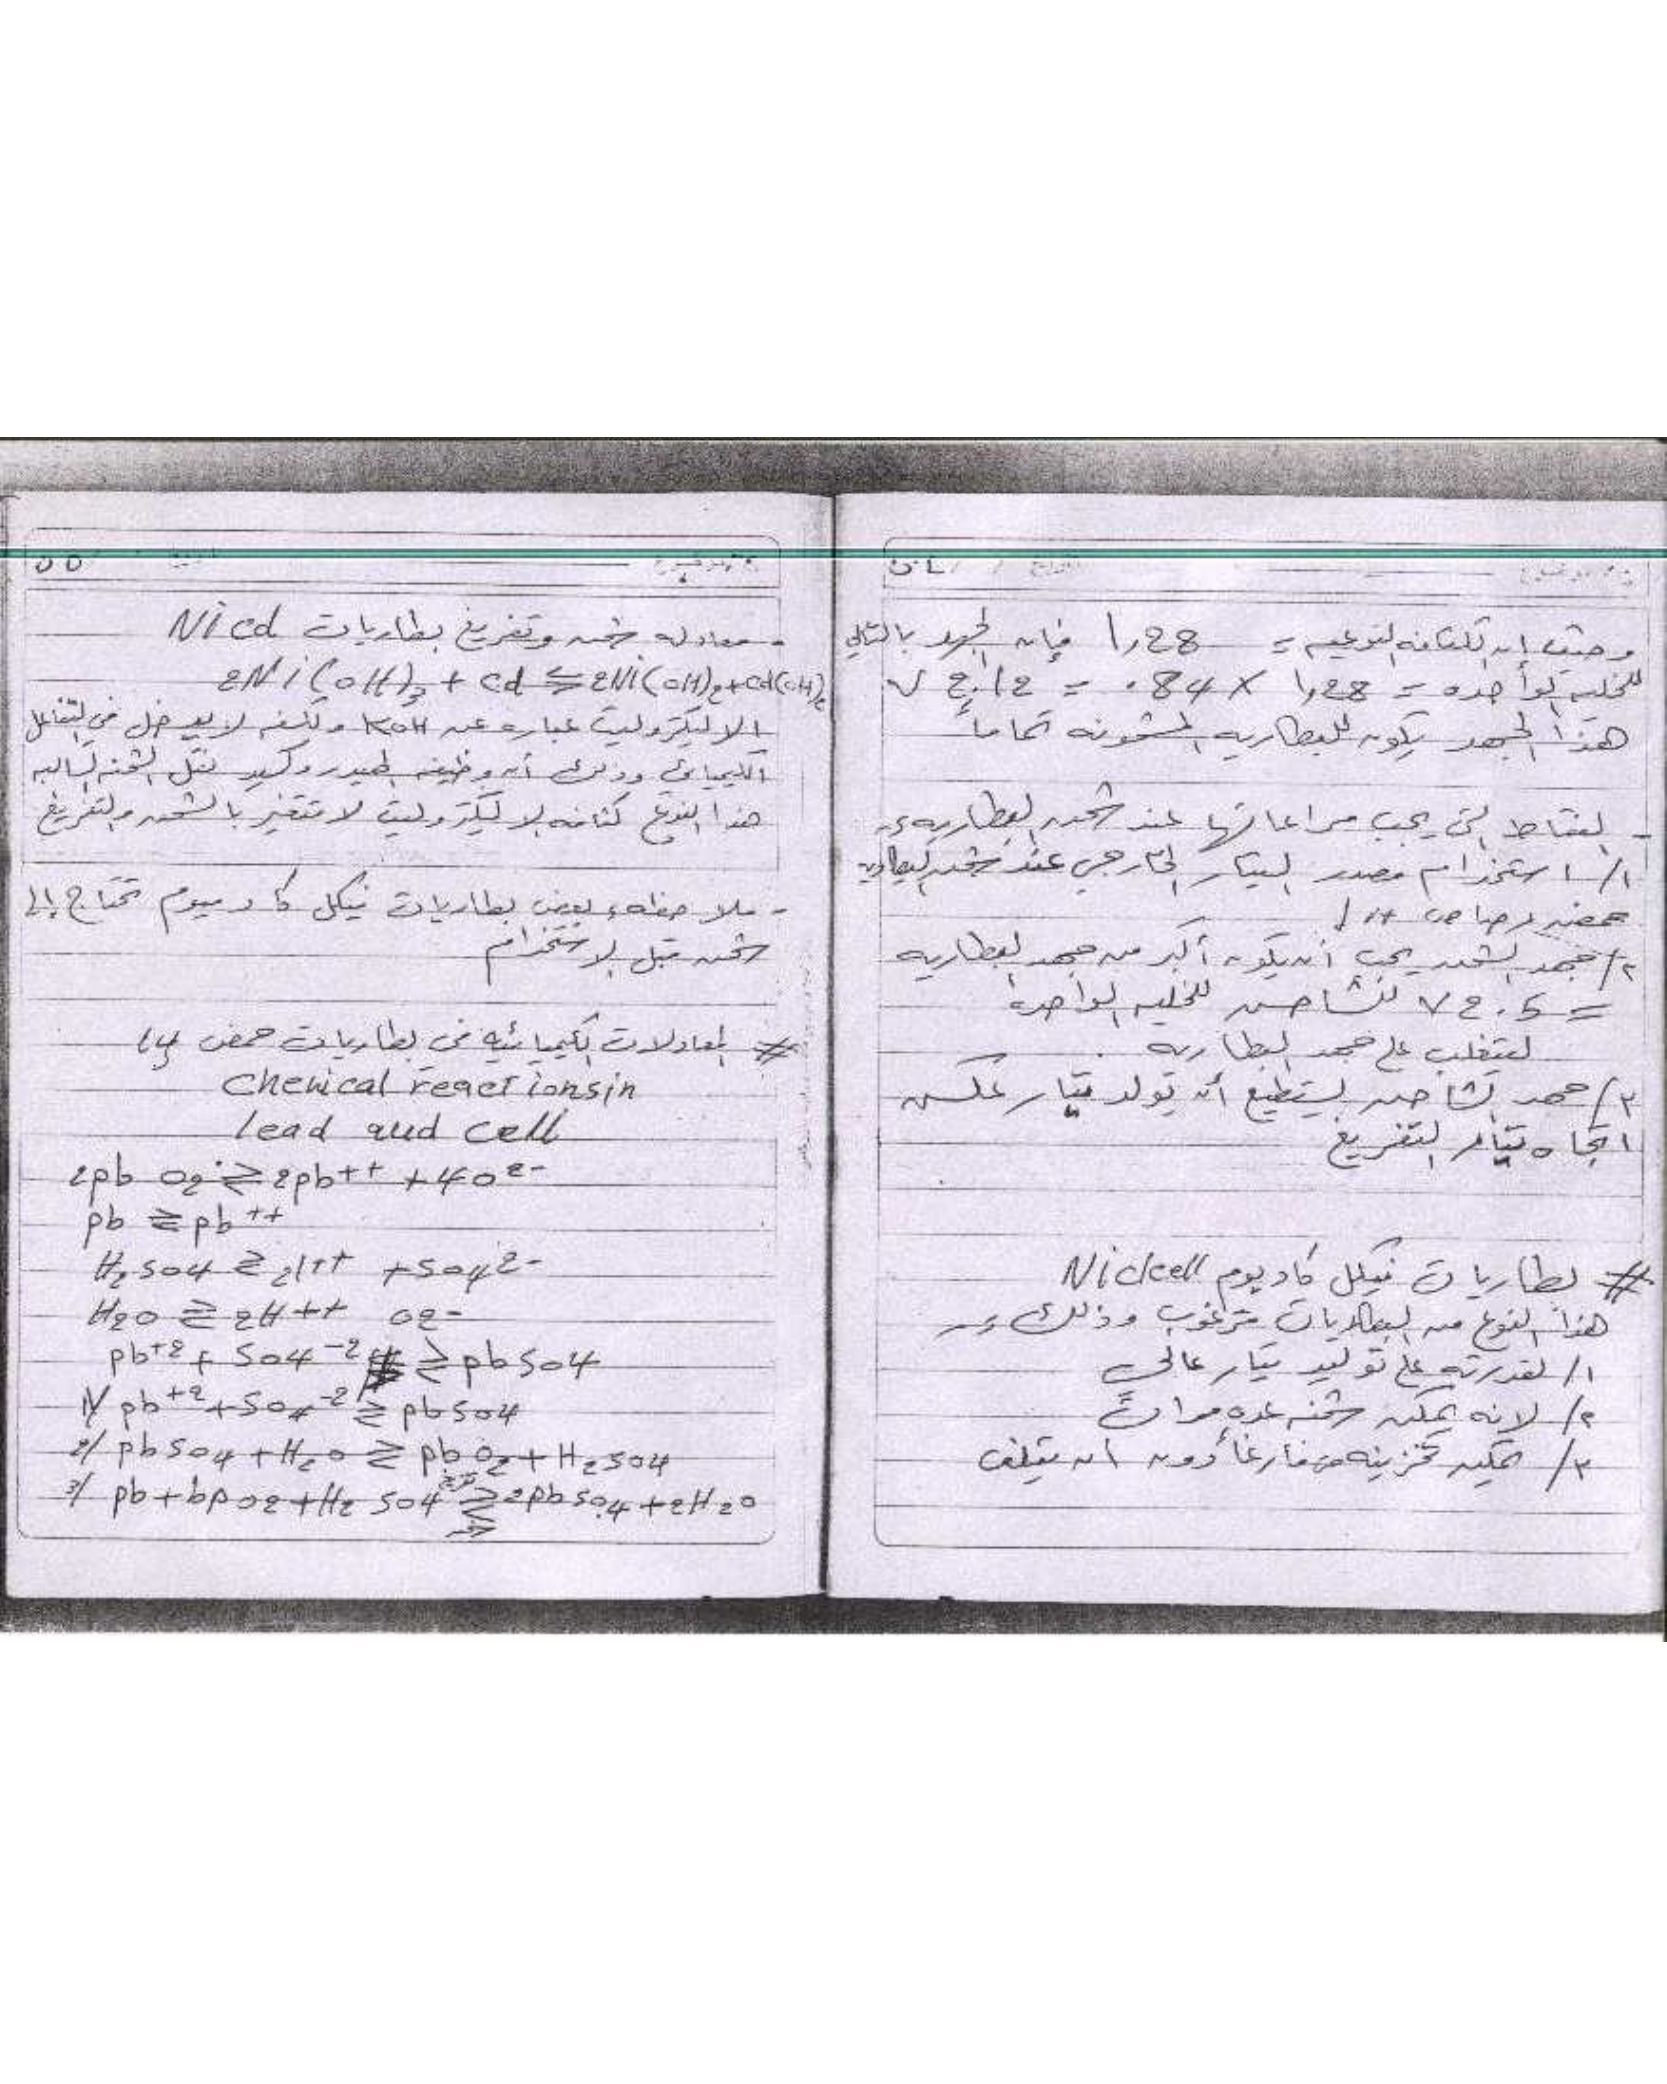 وحيث ان الكثافه النوعيه = 1,28 فإن الجهد بالتالي
للخليه الواحده = 1,28 X .84 = 2.12 V
هذا الجهد يكون للبطاريه المشحونه تماماً
- النقاط التى يجب مراعاتها عند شحن البطاريه :-
١/ استخدام مصدر التيار الخارجي عند شحن البطاريه
حمض رصاص
٢/ جهد الشحن يجب أن يكون أكبر من جهد البطاريه
= 2.5 V للشاحن للخليه الواحده
ليتغلب على جهد البطاريه .
٣/ جهد الشاحن يستطيع أن يولد تيار عكس
اتجاه تيار التفريغ
# بطاريات نيكل كادميوم Nicdcell
هذا النوع من البطاريات مرغوب وذلك :-
١/ لقدرته على توليد تيار عالى
٢/ لانه يمكن شحنه عده مرات
٣/ يمكن تخزينه فارغاً دون ان يتلف
55
- معادله شحن وتفريغ بطاريات Nicd
2Ni(OH)3 + Cd ⇆ 2Ni(OH)2 + Cd(OH)2
الاليكتروليت عباره عن KOH ولكنه لا يدخل فى التفاعل
الكيميائى وذلك أن وظيفه الهيدروكسيد نقل الشحنه السالبه
هذا النوع كثافه الاليكتروليت لا تتغير بالشحن والتفريغ
- ملاحظه : بعض بطاريات نيكل كادميوم تحتاج إلى
شحن قبل الاستخدام
# المعادلات الكيميائيه فى بطاريات حمض
Chemical reactionsin
lead aud cell
2pb O2 ⇄ 2pb++ + 4O2-
pb ⇄ pb++
H2SO4 ⇄ 2H+ + SO42-
H2O ⇄ 2H++ O2-
pb+2 + SO4-2 ⇄ pbSO4
1/ pb+2 + SO4-2 ⇄ pbSO4
2/ pbSO4 + H2O ⇄ pbO2 + H2SO4
3/ pb + bpO2 + H2 SO4 ⇄ 2pbSO4 + 2H2O